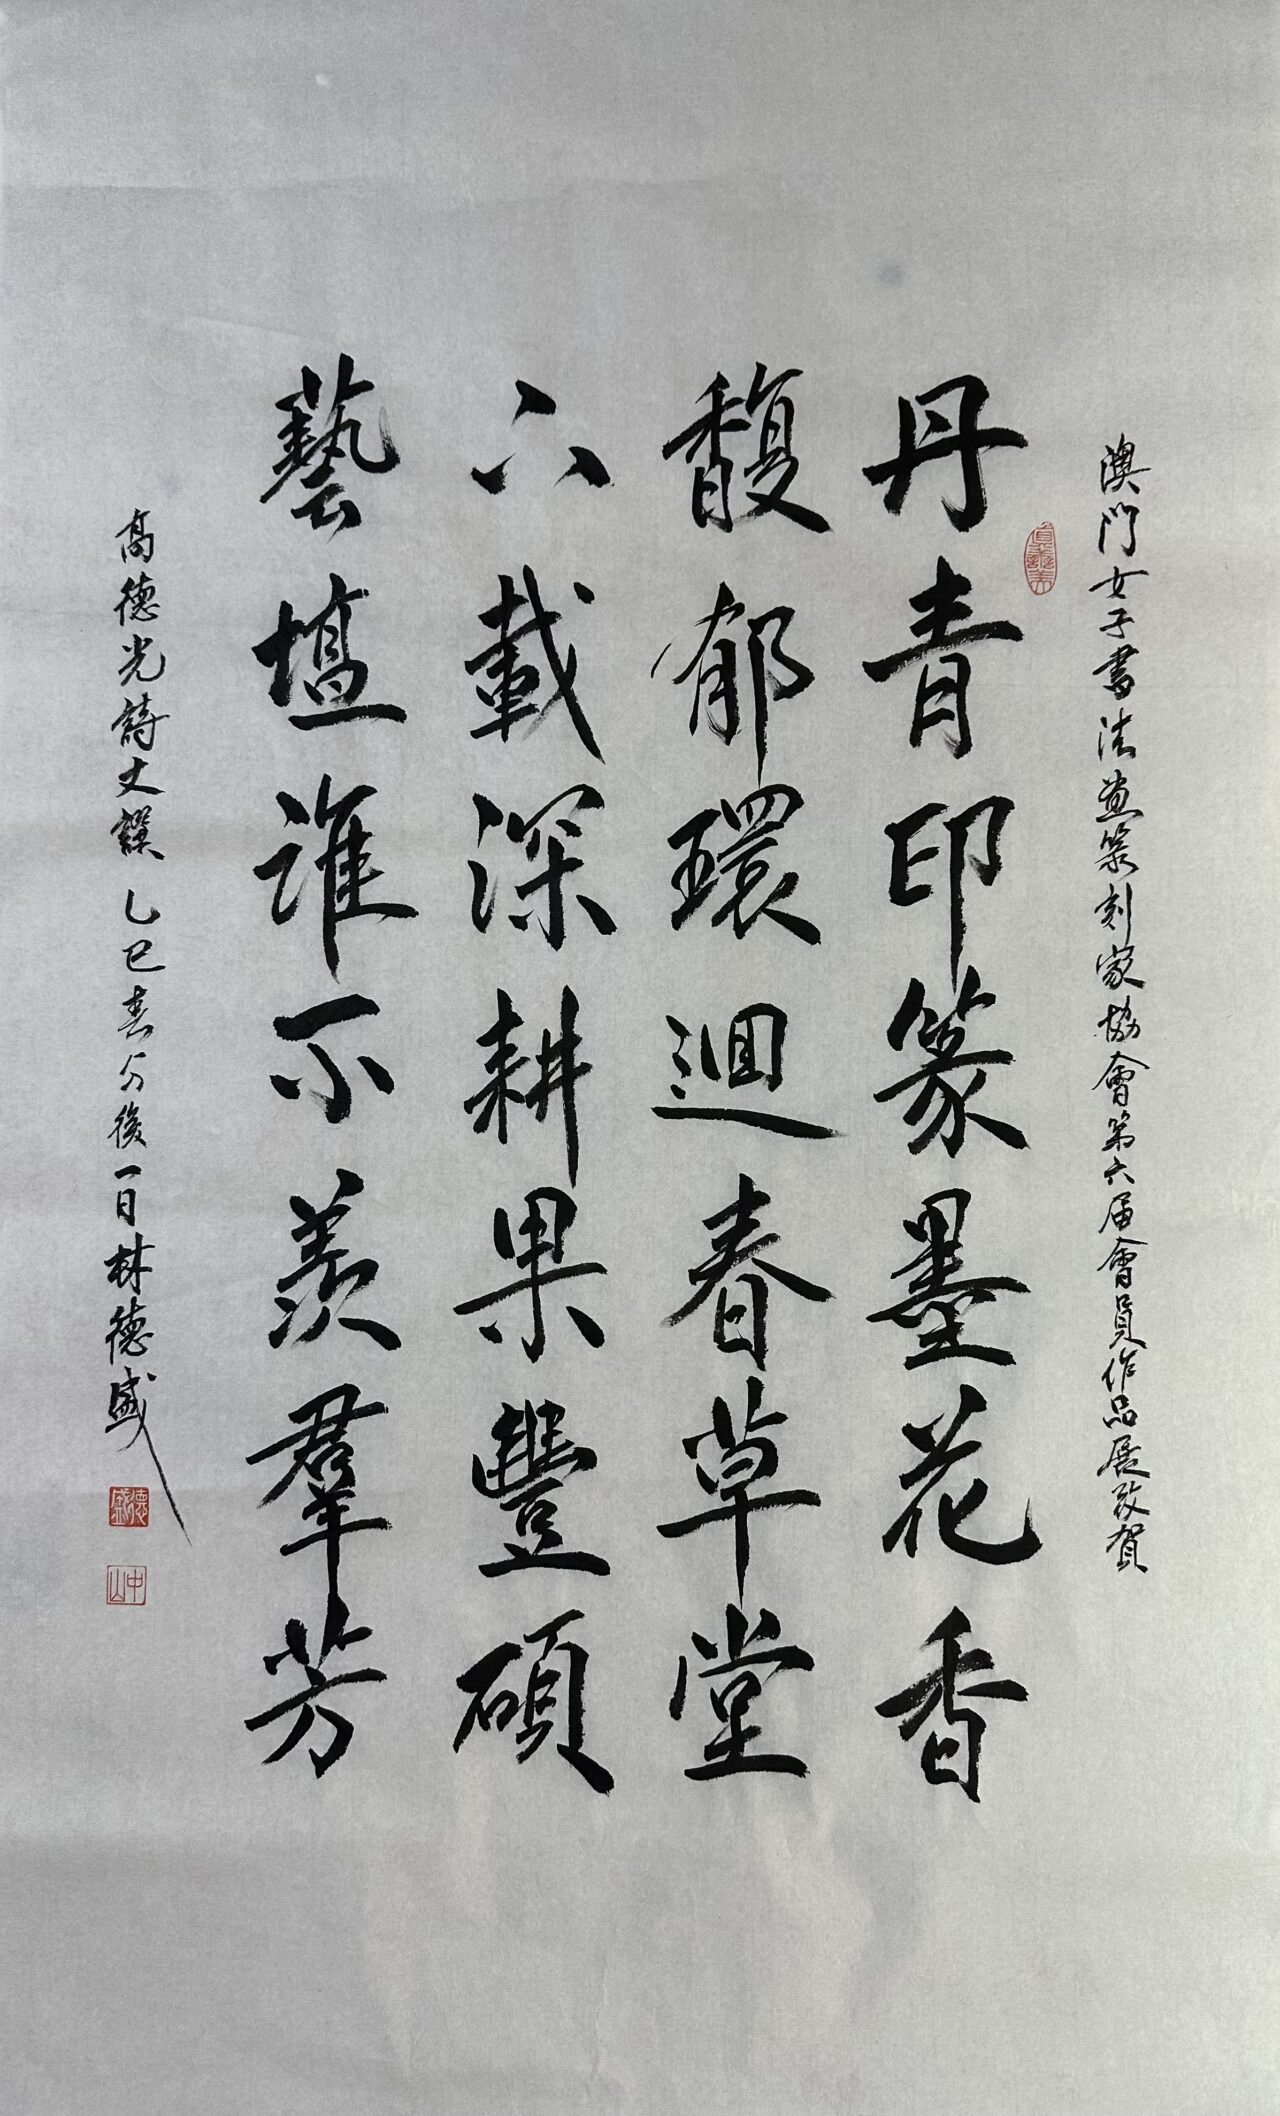 澳門女子書法畫篆刻家協會第六屆會員作品展致賀
真善美
丹青印篆墨花香
馥郁環迴春草堂
六載深耕果豐碩
藝壇誰不羨羣芳
高德光詩文譔乙巳春分後一日林德盛
德盛
中山